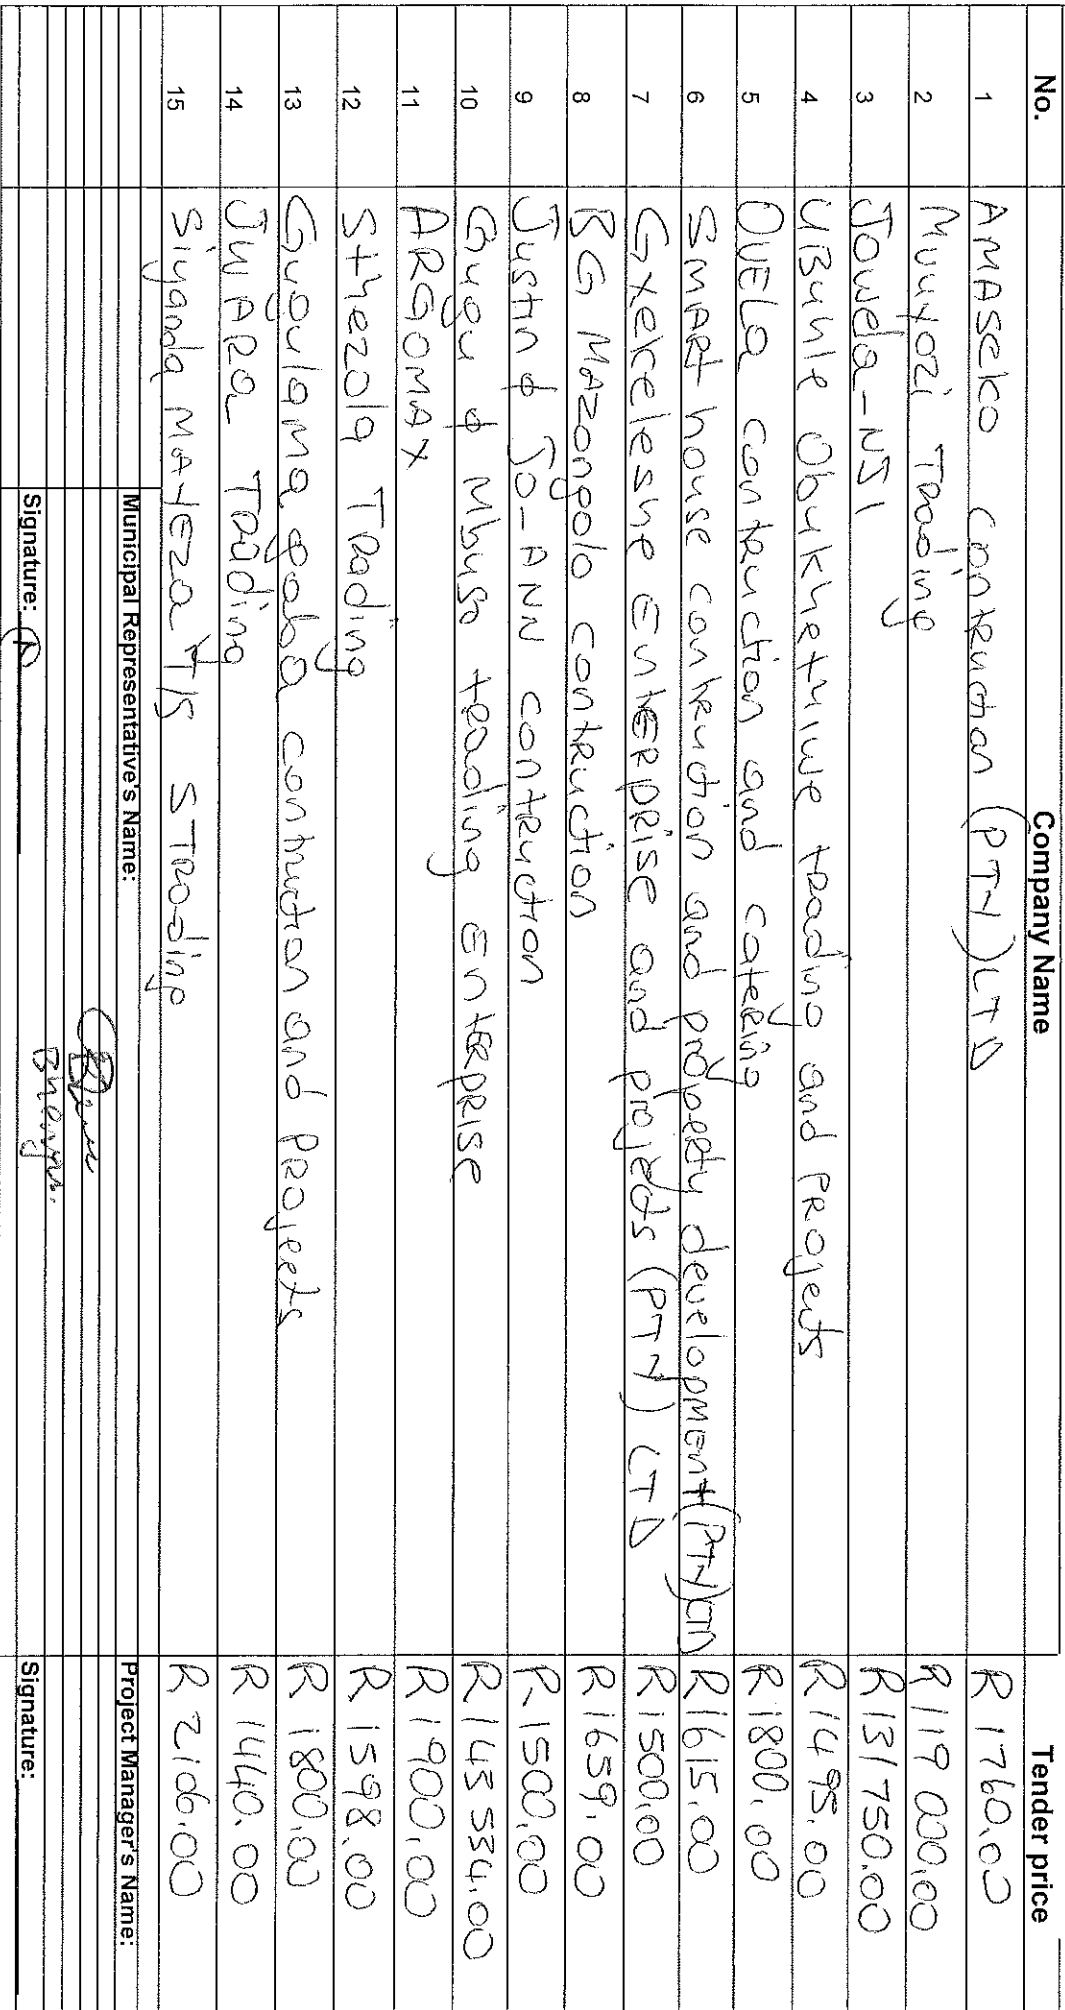 No. Company Name Tender price
1 AMASeko Contruction (PTY) LTD R 1760.00
2 Muuyozi Trading R 119 000.00
3 Jowela-NJI R 131 750.00
4 UBuhle Obukhethiwe trading and Projects R 1495.00
5 OVELa contruction and catering R 1800.00
6 SMARt house contruction and property development (PTY) LTD R 1615.00
7 Gxekeleshe EntERpRise and projects (PTY) LTD R 1500.00
8 BG MAZongolo contruction R 1659.00
9 Justin & Jo-ANN contruction R 1500.00
10 Gugu & Mbuso trading EnteRpRise R 145 534.00
11 ARGOMAX R 1900.00
12 Sthezola Trading R 1598.00
13 Gugulama gaba contruction and Projects R 1800.00
14 JW ARa Trading R 1440.00
15 Siyanda MAYEza T/S STrading R 2106.00
Municipal Representative's Name: Project Manager's Name:
Signature: Signature: